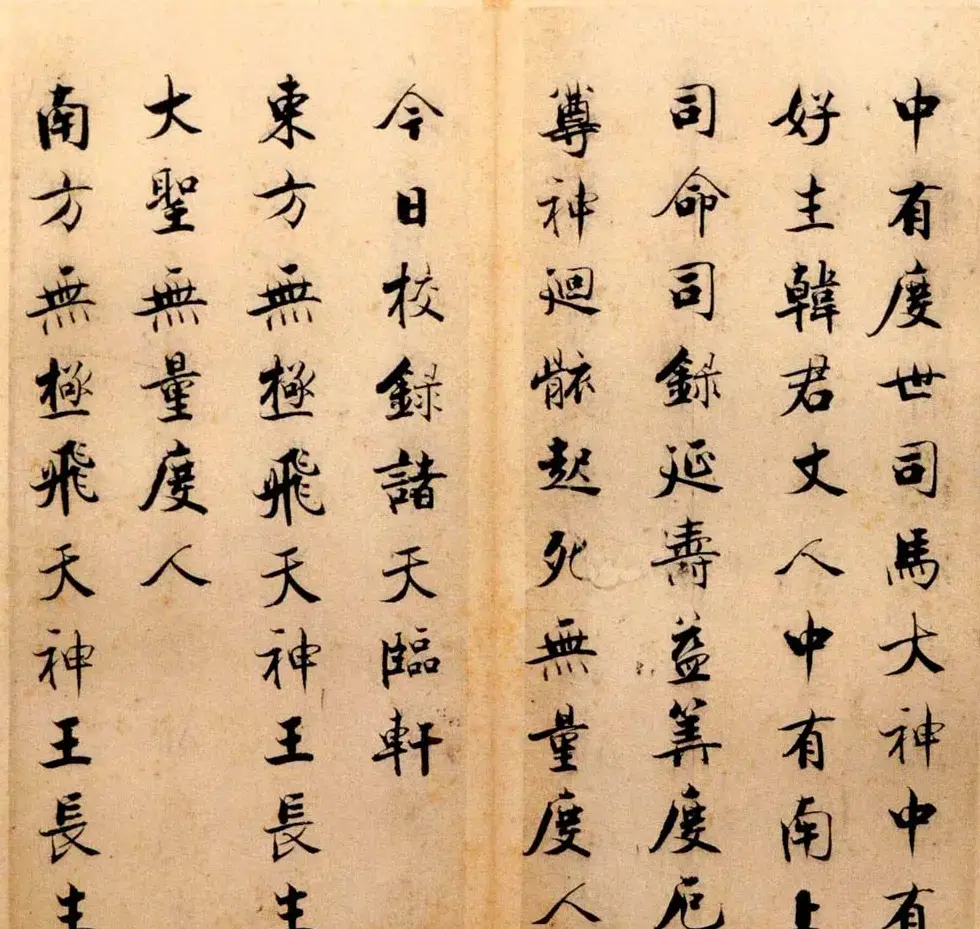 中有度世司馬大神中有
好生韓君丈人中有南上
司命司録延壽益筭度厄
尊神迴骸起死無量度人
今日校録諸天臨軒
東方無極飛天神王長生
大聖無量度人
南方無極飛天神王長生